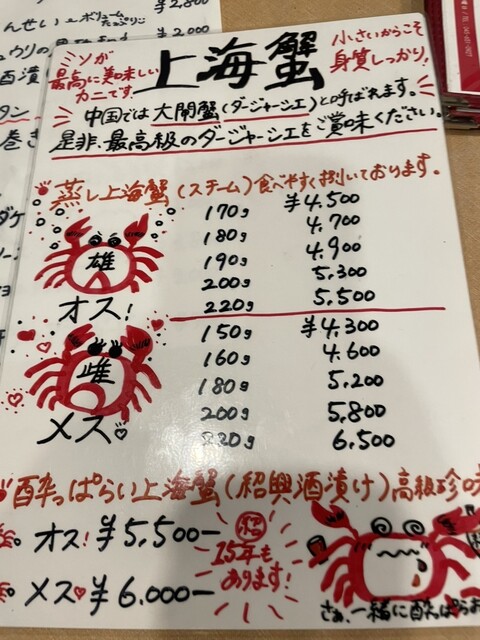 んせい ボリューム たっぷり ¥2,800
ウリの
¥2,000
酒漬け
タン
巻き
ミソが
最高に美味しい
カニです
上海蟹
小さいからこそ
身質しっかり!
中国では大閘蟹(ダージャーシエ)と呼ばれます。
是非、最高級のダージャーシエをご賞味ください。
蒸し上海蟹(スチーム)食べやすく捌いております。
雄
オス!
170g ¥4,500
180g 4,700
190g 4,900
200g 5,300
220g 5,500
雌
メス♡
150g ¥4,300
160g 4,600
180g 5,200
200g 5,800
220g 6,500
酔っぱらい上海蟹(紹興酒漬け)高級珍味
オス! ¥5,500-
メス♥ ¥6,000-
15年も
あります!
さぁ、一緒に酔っぱらお